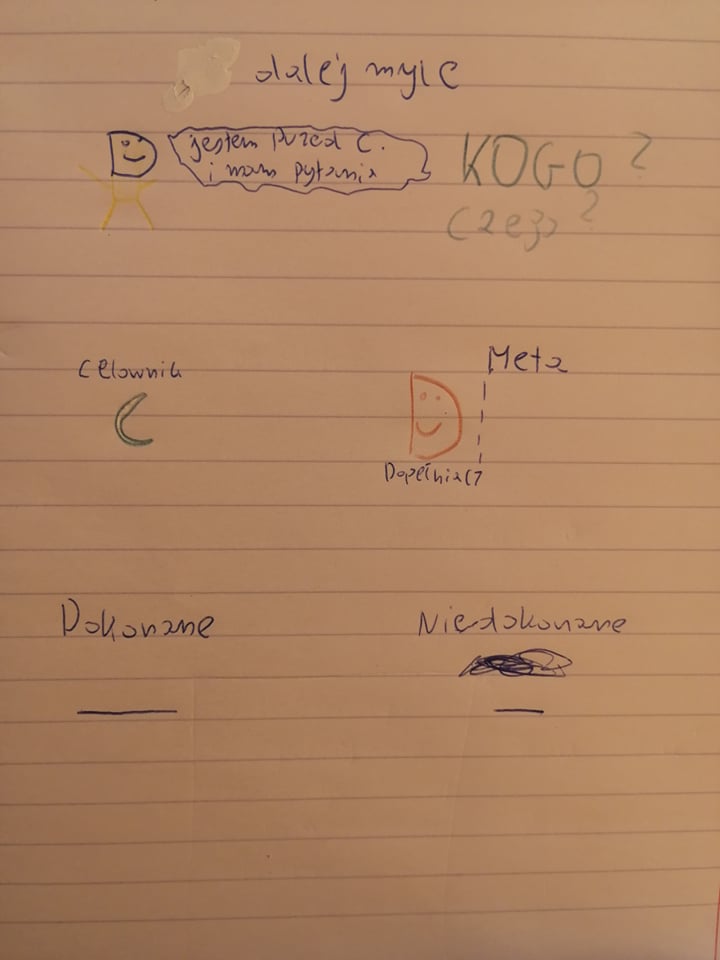 dalej mylę
jestem przed C.
i mam pytania
KOGO?
Czego?
Celownik
Meta
Dopełniacz
Dokonane
Niedokonane